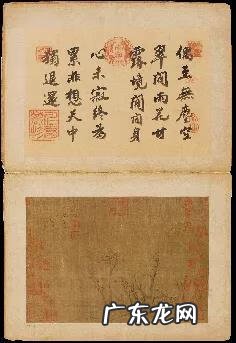 偶至無塵空
翠間雨花甘
露境閒閒身
心未寂終為
累非想天中
獨退還
广东龙网